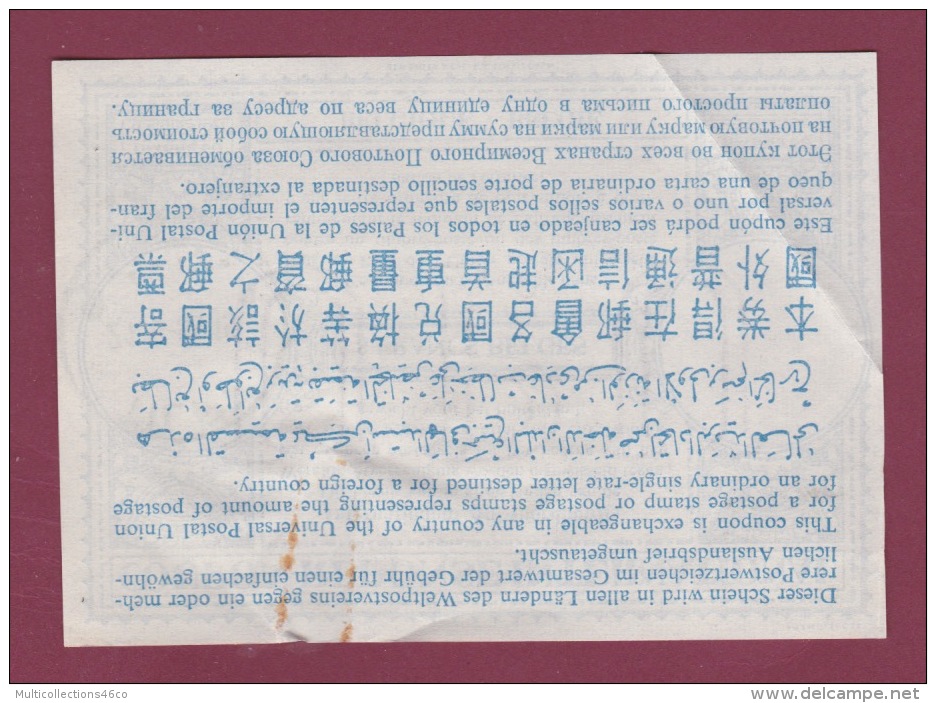 Dieser Schein wird in allen Ländern des Weltpostvereins gegen ein oder meh-
rere Postwertzeichen im Gesamtwert der Gebühr für einen einfachen gewöhn-
lichen Auslandsbrief umgetauscht.
This coupon is exchangeable in any country of the Universal Postal Union
for a postage stamp or postage stamps representing the amount of postage
for an ordinary single-rate letter destined for a foreign country.
本券得在郵會各國兌換等於該國寄
國外普通信函起首重量郵資之郵票
Este cupón podrá ser canjeado en todos los Países de la Unión Postal Uni-
versal por uno o varios sellos postales que representen el importe del fran-
queo de una carta ordinaria de porte sencillo destinada al extranjero.
Этот купон во всех странах Всемирного Почтового Союза обменивается
на почтовую марку или марки на сумму представляющую собой стоимость
оплаты простого письма в одну единицу веса по адресу за границу.
Multicollections46co
www.delcampe.net